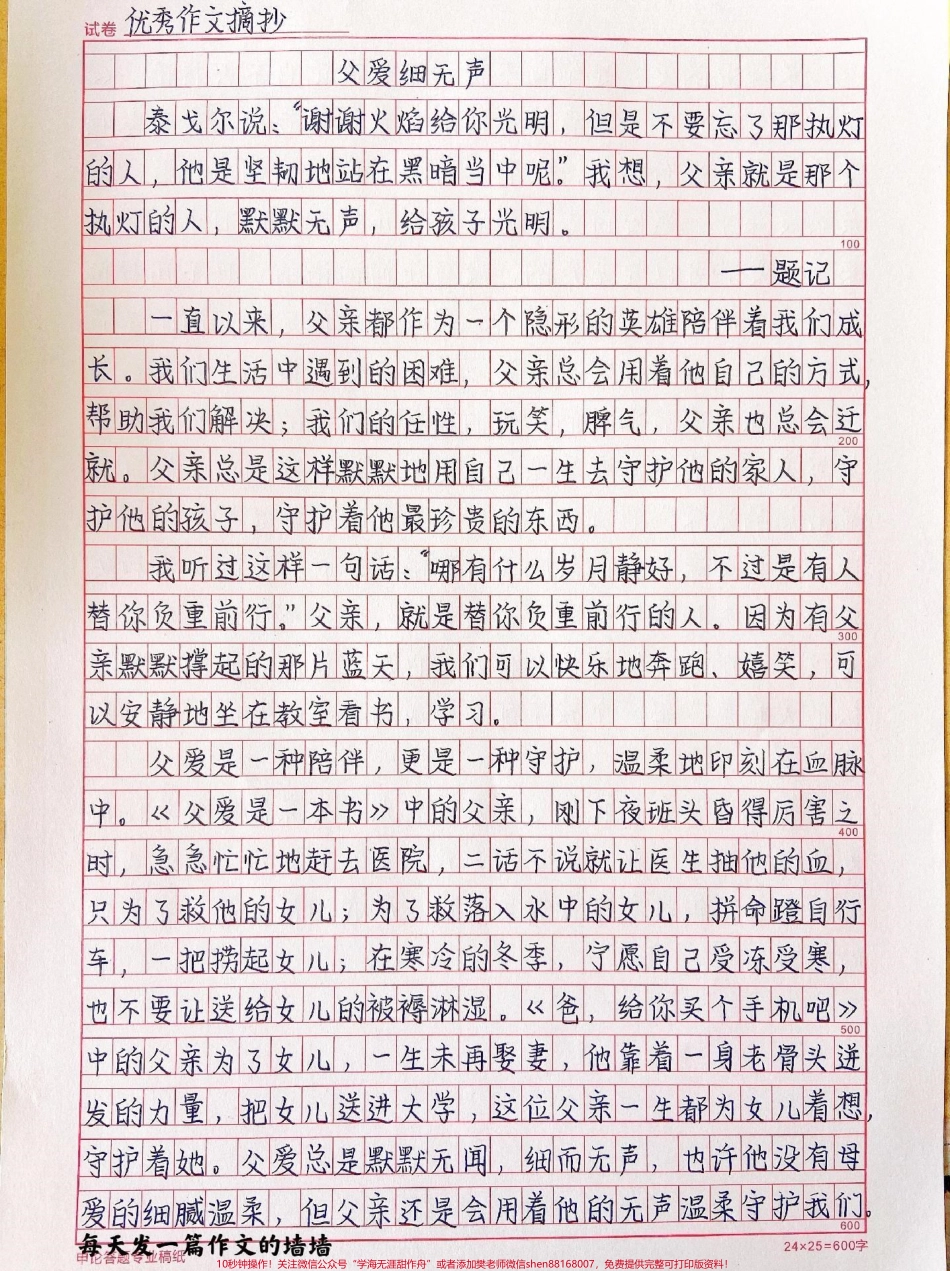 试卷 优秀作文摘抄
父爱细无声
泰戈尔说：“谢谢火焰给你光明，但是不要忘了那执灯
的人，他是坚韧地站在黑暗当中呢。”我想，父亲就是那个
执灯的人，默默无声，给孩子光明。
100
——题记
一直以来，父亲都作为一个隐形的英雄陪伴着我们成
长。我们生活中遇到的困难，父亲总会用着他自己的方式，
帮助我们解决；我们的任性，玩笑，脾气，父亲也总会迁
200
就。父亲总是这样默默地用自己一生去守护他的家人，守
护他的孩子，守护着他最珍贵的东西。
我听过这样一句话：“哪有什么岁月静好，不过是有人
替你负重前行。”父亲，就是替你负重前行的人。因为有父
300
亲默默撑起的那片蓝天，我们可以快乐地奔跑、嬉笑，可
以安静地坐在教室看书，学习。
父爱是一种陪伴，更是一种守护，温柔地印刻在血脉
中。《父爱是一本书》中的父亲，刚下夜班头昏得厉害之
400
时，急急忙忙地赶去医院，二话不说就让医生抽他的血，
只为了救他的女儿；为了救落入水中的女儿，拼命蹬自行
车，一把捞起女儿；在寒冷的冬季，宁愿自己受冻受寒，
也不要让送给女儿的被褥淋湿。《爸，给你买个手机吧》
500
中的父亲为了女儿，一生未再娶妻，他靠着一身老骨头迸
发的力量，把女儿送进大学，这位父亲一生都为女儿着想，
守护着她。父爱总是默默无闻，细而无声，也许他没有母
爱的细腻温柔，但父亲还是会用着他的无声温柔守护我们。
600
每天发一篇作文的墙墙
申论答题专业稿纸
24×25=600字
10秒钟操作！关注微信公众号“学海无涯甜作舟”或者添加樊老师微信shen88168007，免费提供完整可打印版资料！